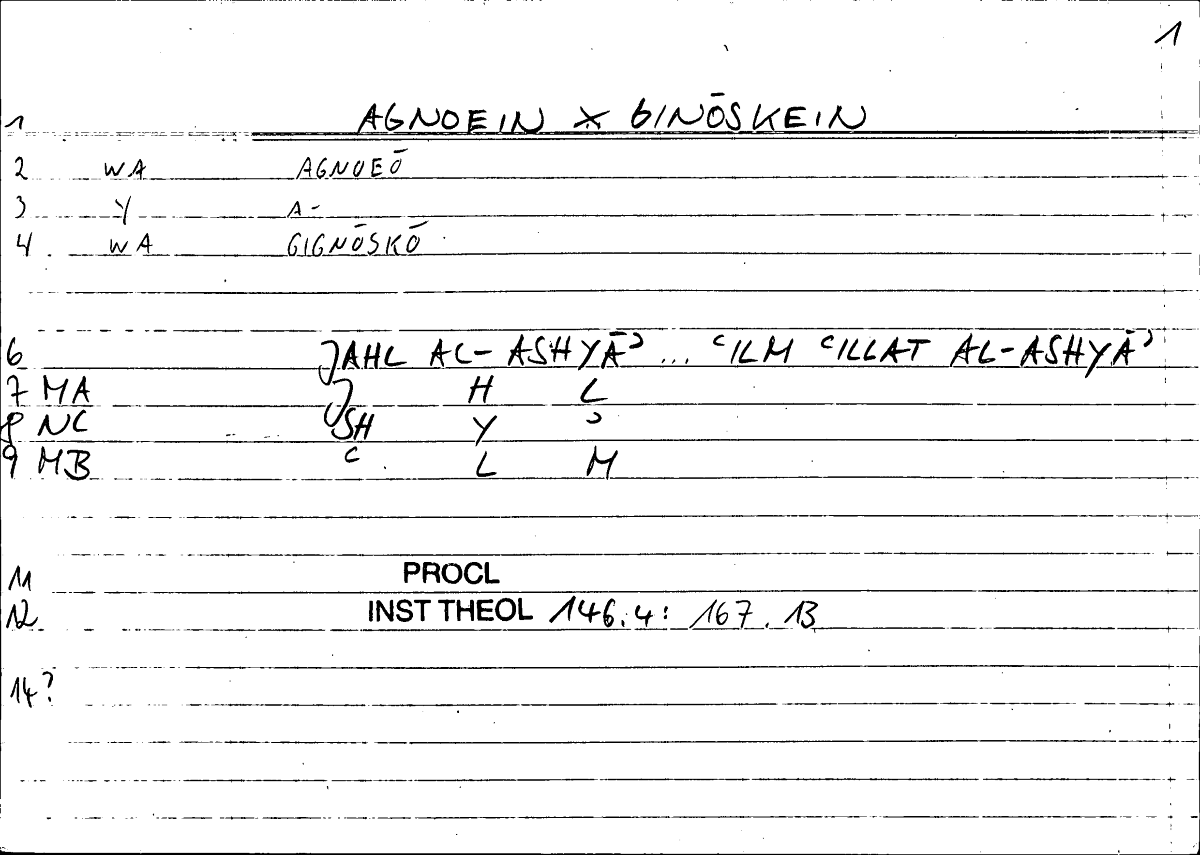 1
1 AGNOEIN X GINŌSKEIN
2 WA AGNOEŌ
3 Y A-
4 WA GIGNŌSKŌ
6 JAHL AL-ASHYĀʾ ... ʿILM ʿILLAT AL-ASHYĀʾ
7 MA J H L
8 NC SH Y ʾ
9 MB ʿ L M
11 PROCL
12 INST THEOL 146.4: 167.13
14?